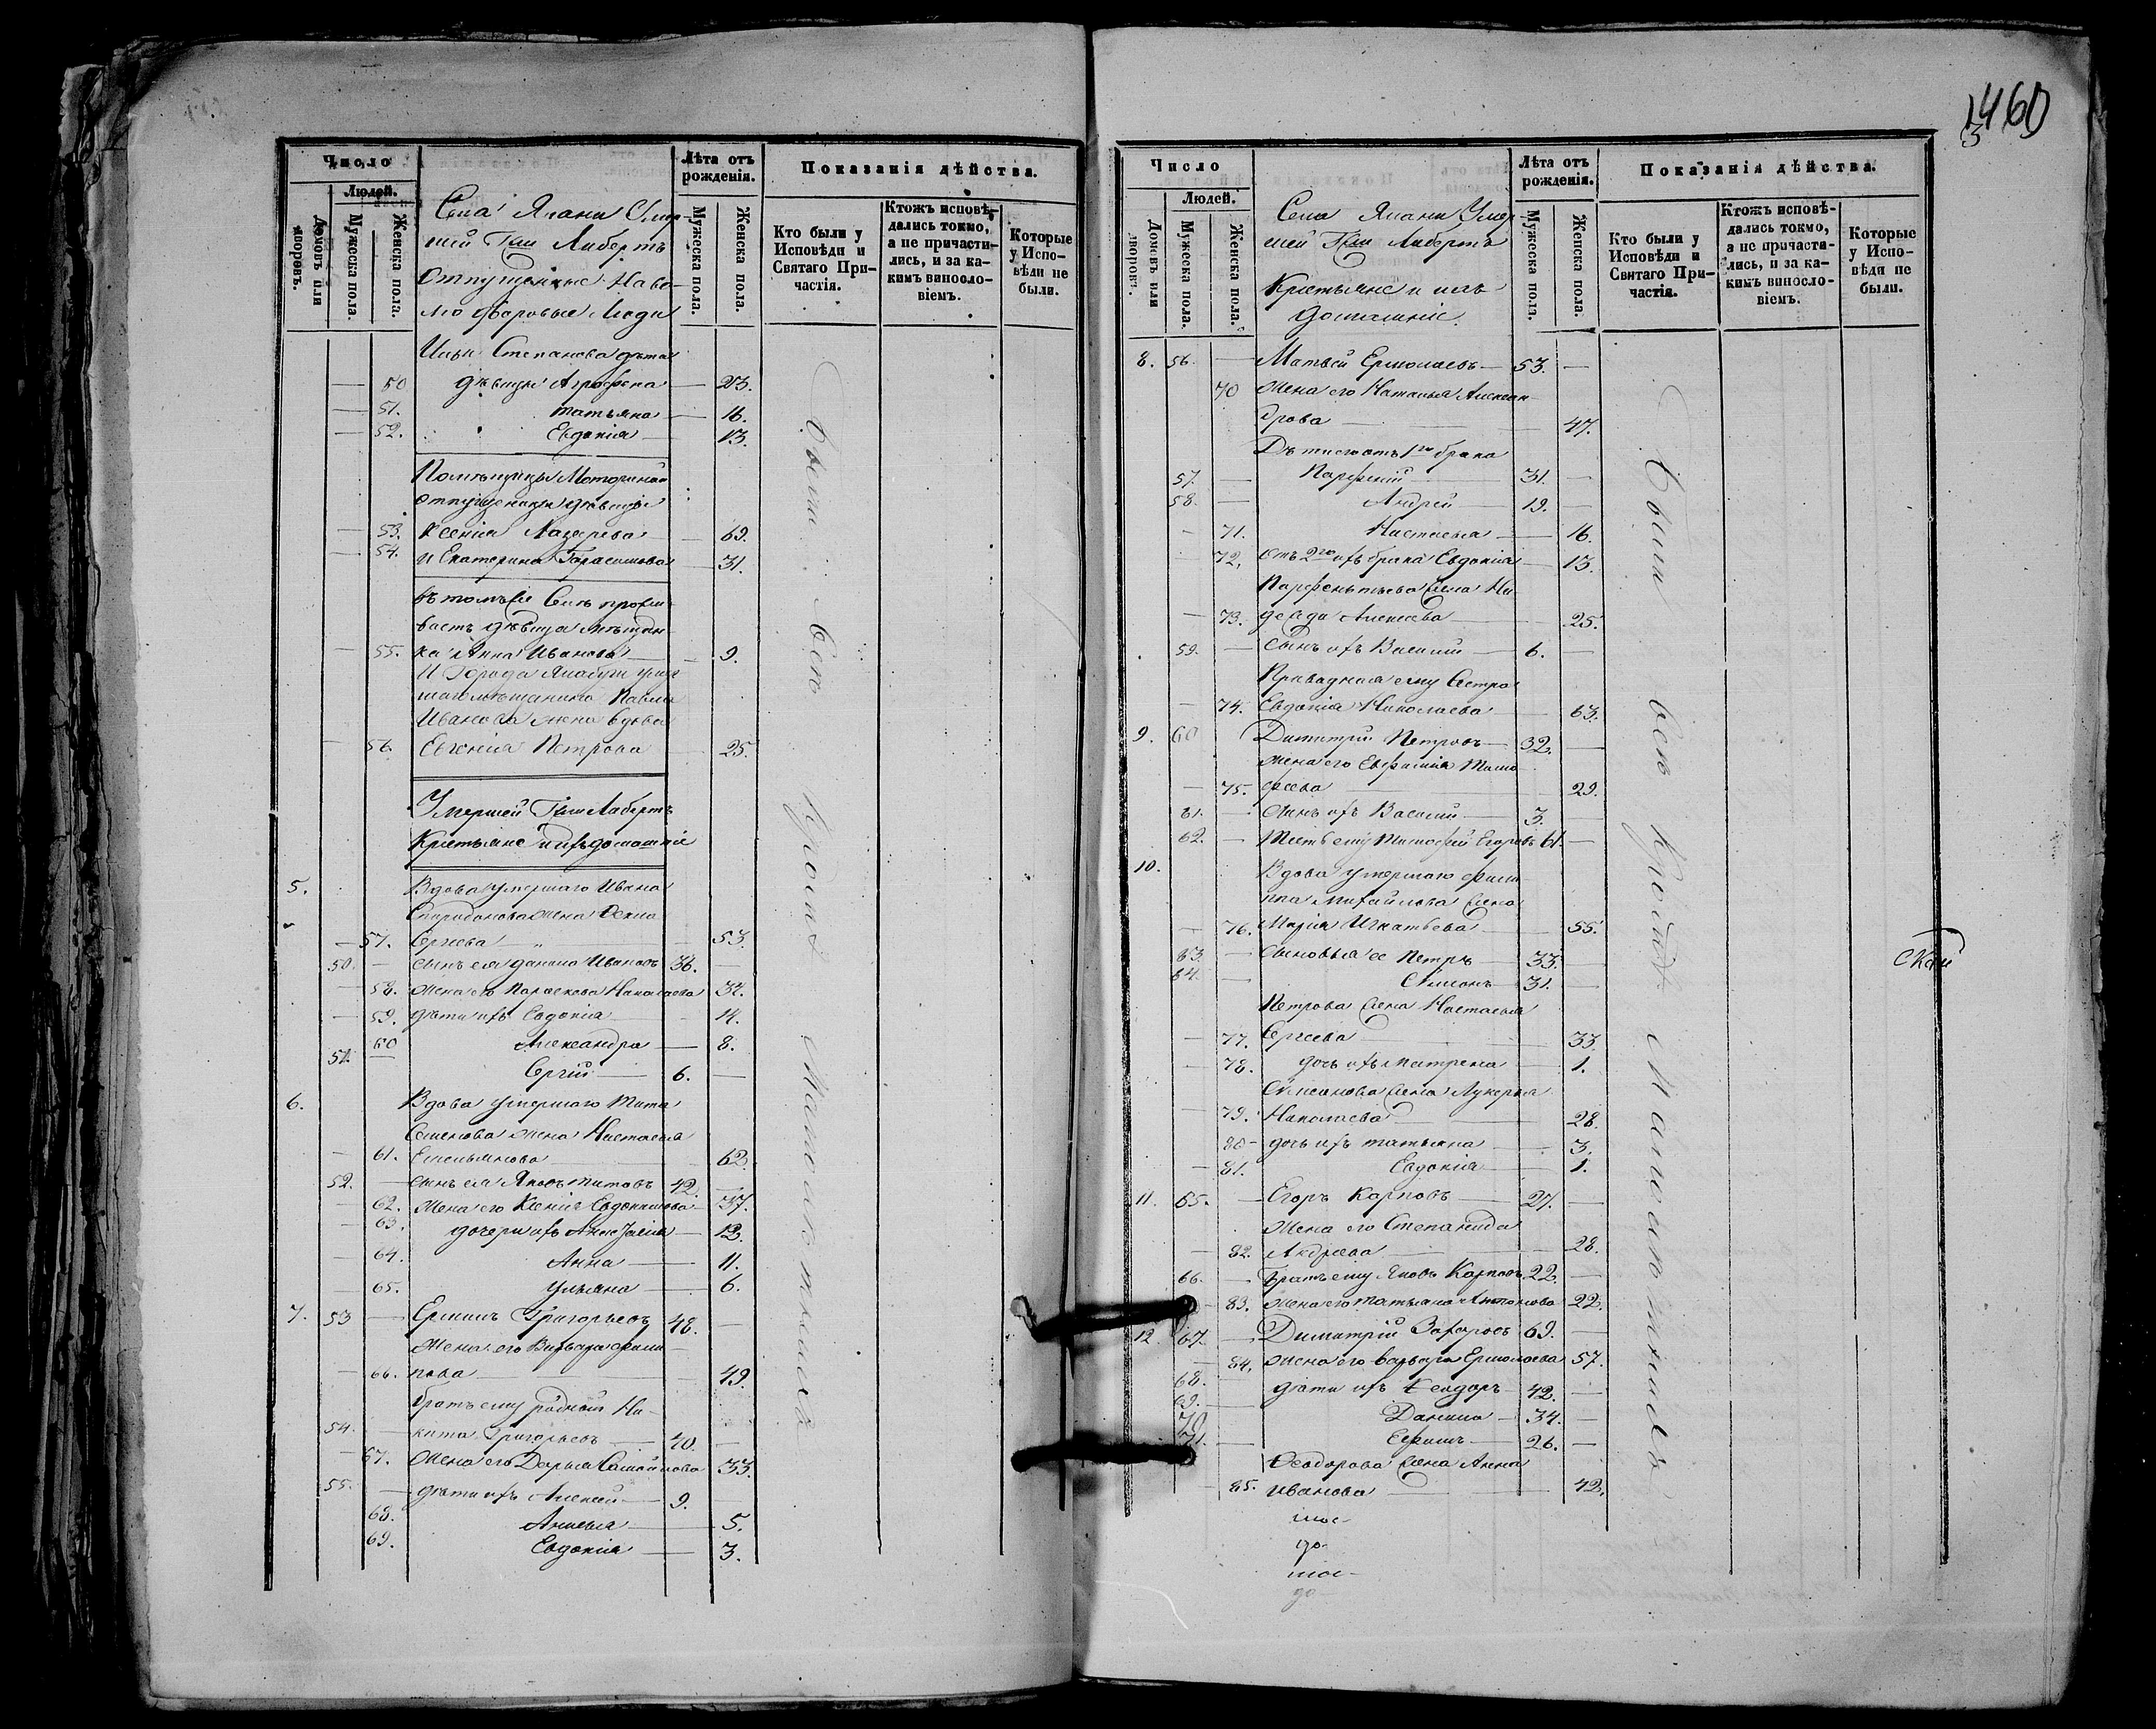 460
3
Число
Людей.
Домовъ или дворовъ.
Мужеска пола.
Женска пола.
Лѣта отъ рожденія.
Мужеска пола.
Женска пола.
Показанія дѣйства.
Кто были у Исповѣди и Святаго Причастія.
Ктожъ исповѣдались токмо, а не причастились, и за какимъ винословіемъ.
Которые у Исповѣди не были.
Села Алани Умер-
шей Гжи Либертъ
отпущенные на во-
лю дворовые люди
Ильи Степанова дѣти
50 дѣвицы Агрофена 23.
51. татьяна 16.
52. Евдокія 13.
Помѣщицы Моториной
отпущенницы дѣвицы
53. Ксенія Лазарева 69.
54. и Екатерина Герасимова 31.
Въ томъ же Селѣ прожи-
ваетъ дѣвица мѣщан-
55. ка Анна Иванова 9.
И Города Елабуги умер
шаго мѣщанина Павла
Иванова жена вдова
56. Евгенія Петрова 25.
Умершей Гжи Либертъ
Крестьяне и ихъ домашніе
5. Вдова умершаго Ивана
Спиридонова жена
57. Сергѣева 53.
50. сынъ ея Данило Ивановъ 36.
58. жена его Параскева Николаева 34.
59. дѣти ихъ Евдокія 14.
60 Александра 8.
51. Сергій 6.
6. Вдова умершаго Тита
Семенова жена Настасья
61. Емельянова 62.
52. сынъ ея Яковъ Титовъ 42.
62. жена его Ксенія Евдокимова 37.
63. дочери ихъ 12.
64. Анна 11.
65. Ульяна 6.
7. 53 Ермилъ Григорьевъ 48.
Жена его Варвара Фили-
66. пова 49.
братъ ему родный Ни-
54. кита Григорьевъ 40.
67. Жена его Дарья Самойлова 33.
55. дѣти ихъ Алексей 9.
68. Анисья 5.
69. Евдокія 3.
Были всѣ крошѣ малолѣтнихъ
Число
Людей.
Домовъ или дворовъ.
Мужеска пола.
Женска пола.
Лѣта отъ рожденія.
Мужеска пола.
Женска пола.
Показанія дѣйства.
Кто были у Исповѣди и Святаго Причастія.
Ктожъ исповѣдались токмо, а не причастились, и за какимъ винословіемъ.
Которые у Исповѣди не были.
Села Алани Умер-
шей Гжи Либертъ
Крестьяне и ихъ
домашніе.
8. 56. Матвей Ермолаевъ 53.
70 жена его Наталья Алексан
дрова 47.
Дѣти его отъ 1го брака
57. Парфеній 31.
58. Андрей 19.
71. Настасья 16.
72. отъ 2го ихъ брака Евдокія 13.
Парфентьева жена На
73. дежда Алексеева 25.
59. сынъ ихъ Василій 6.
сестра
74. Евдокія Николаева 63.
9. 60 Димитрій Петровъ 32.
жена его Евфимія Тимо
75. феева 29.
61. сынъ ихъ Василій 3.
62. тесть ему Тимофей Егоровъ 61.
10. Вдова умершаго Фили
ппа Михайлова жена
76. Марія Игнатьева 55.
63. сыновья ее Петръ 33.
64. Симонъ 31.
Петрова жена Настасья
77. Сергѣева 33.
78. дочь ихъ Матрена 1.
Симонова жена Лукерья
79. Николаева 28.
80 дочь ихъ татьяна 3.
81. Евдокія 1.
11. 65. Егоръ Карповъ 27.
жена его Степанида
82. Андреева 28.
66. братъ ему Яковъ Карповъ 22.
83. жена его татьяна Антонова 22.
12. 67. Димитрій Захаровъ 69.
84. жена его варвара Ермолаева 57.
68. дѣти ихъ Ѳеодоръ 42.
69. Данило 34.
70
71. Ефимъ 26.
Ѳеодорова жена Анна
85. Иванова 42.
Были всѣ крошѣ малолѣтнихъ
ской